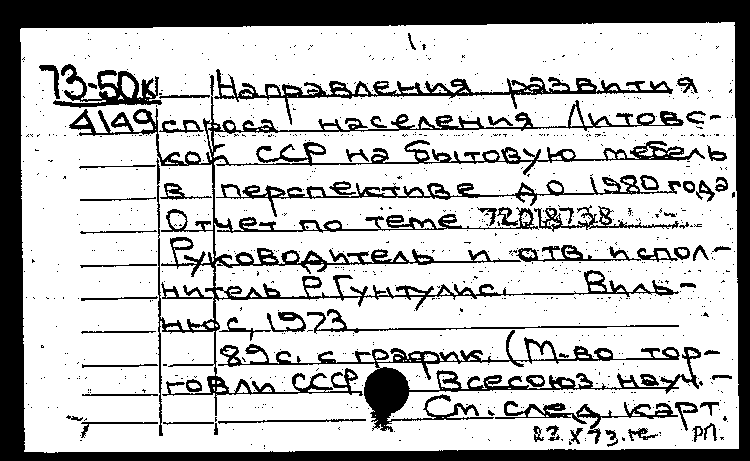 1.
73-50к Направления развития
4149 спроса населения Литовс-
кой ССР на бытовую мебель
в перспективе до 1980 года.
Отчет по теме 72018738.
Руководитель и отв. испол-
нитель Р. Гунтулис. Виль-
нюс, 1973.
89 с. с график. (М-во тор-
говли СССР. Всесоюз. науч.-
См. след. карт.
23.X 73. РП.